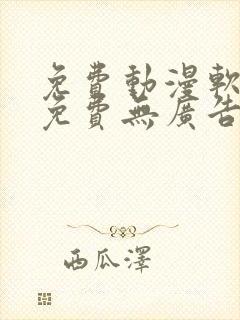 免費動漫軟
免費無廣告
西瓜澤